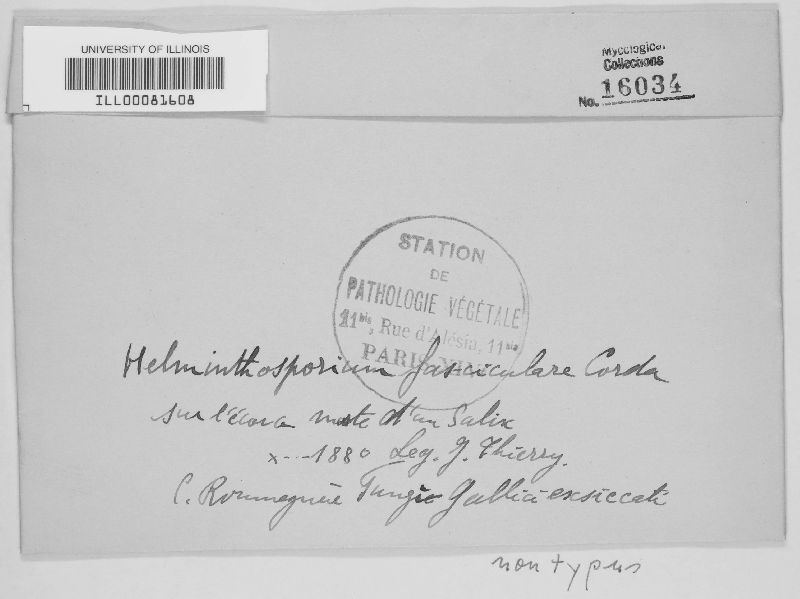 UNIVERSITY OF ILLINOIS
ILL00081608
Mycological
Collections
No. 16034
STATION
DE
PATHOLOGIE VÉGÉTALE
11bis, Rue d'Alésia, 11bis
PARIS XIV
Helminthosporium fasciculare Corda
sur l'écorce morte d'un Salix
x---1880 Leg. J. Thierry.
C. Roumeguère Fungi Gallici exsiccati
non typus